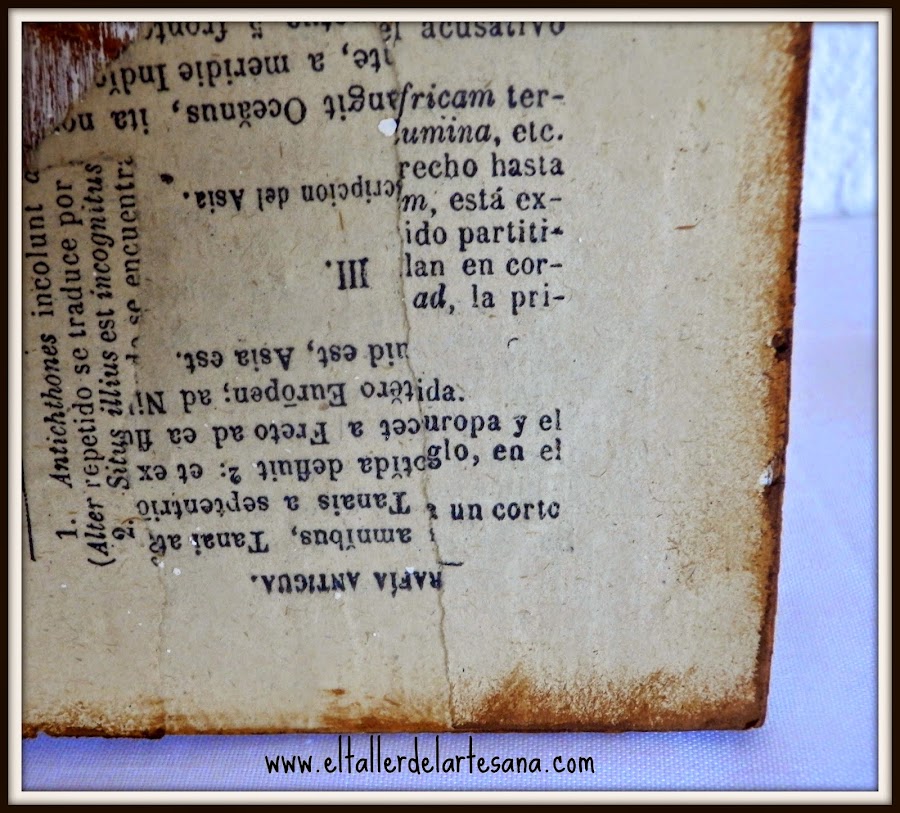 acusativo
fricam ter-
umina, etc.
recho hasta
m, está ex-
ido partiti-
lan en cor-
ad, la pri-
ida.
uropa y el
glo, en el
un corto
RAFÍA ANTIGUA.
amnibus, Tanai
Tanais a septentrio
defluit 2: et ex
cet a Freto ad ea flu
tĕro Eurōpen; ad Ni
uid est, Asia est.
III.
cripcion del Asia.
angit Oceănus, ita no
te, a meridie Indi
5 front
1. Antichthones incolunt
(Alter repetido se traduce por
2. Situs illius est incognitus
se encuentra
www.eltallerdelartesana.com